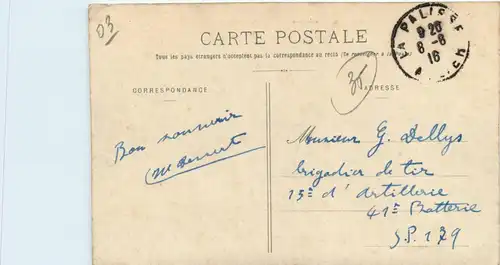 03
CARTE POSTALE
Tous les pays étrangers n'acceptent pas la correspondance au recto (Se renseigner à la Poste)
LA PALISSE
9 20
8 - 8
16
35
CORRESPONDANCE
ADRESSE
Bon souvenir
Monsieur G. Dellys
brigadier de tir
13e d'artillerie
41e Batterie
S.P. 179